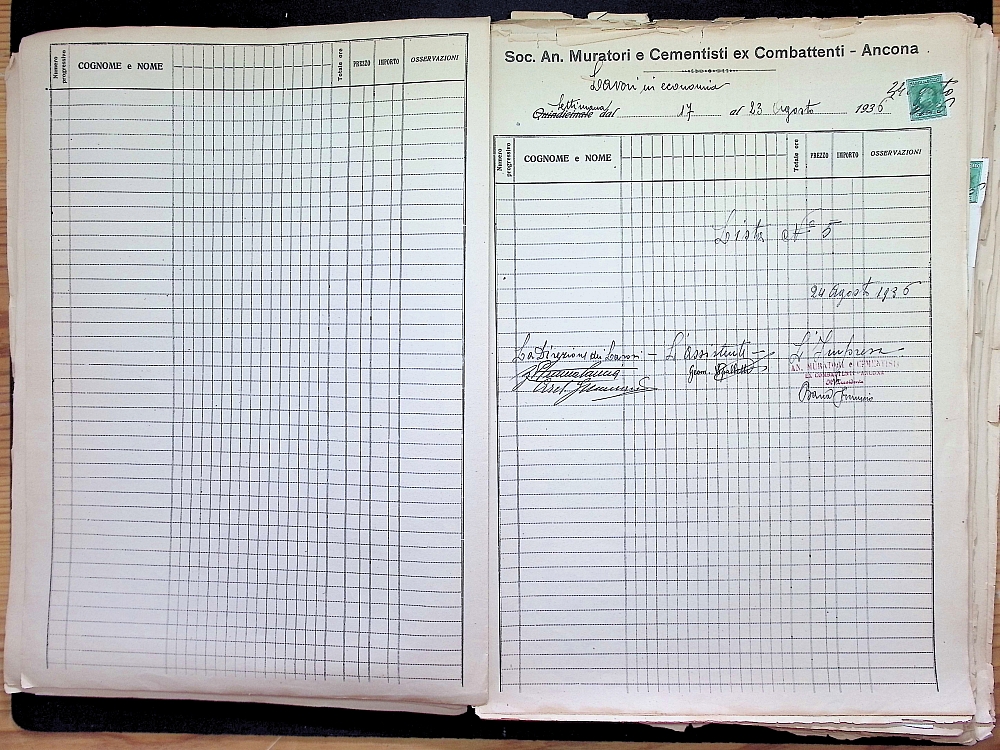 Numero progressivo
COGNOME e NOME
Totale ore
PREZZO
IMPORTO
OSSERVAZIONI
Soc. An. Muratori e Cementisti ex Combattenti - Ancona
Lavori in economia
settimana
Quindicinale dal 17 al 23 Agosto 1936
Numero progressivo
COGNOME e NOME
Totale ore
PREZZO
IMPORTO
OSSERVAZIONI
Lista N° 5
24 Agosto 1936
La Direzione dei Lavori - L'Assistenti - L'Impresa
Geom.
AN. MURATORI e CEMENTISTI
ex COMBATTENTI - ANCONA